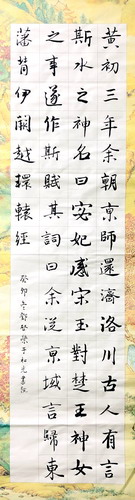 黄初三年余朝京師還濟洛川古人有言
斯水之神名曰宓妃感宋玉對楚王神女
之事遂作斯賦其詞曰余從京域言歸東
藩背伊闕越轘轅經
癸卯于和光書院